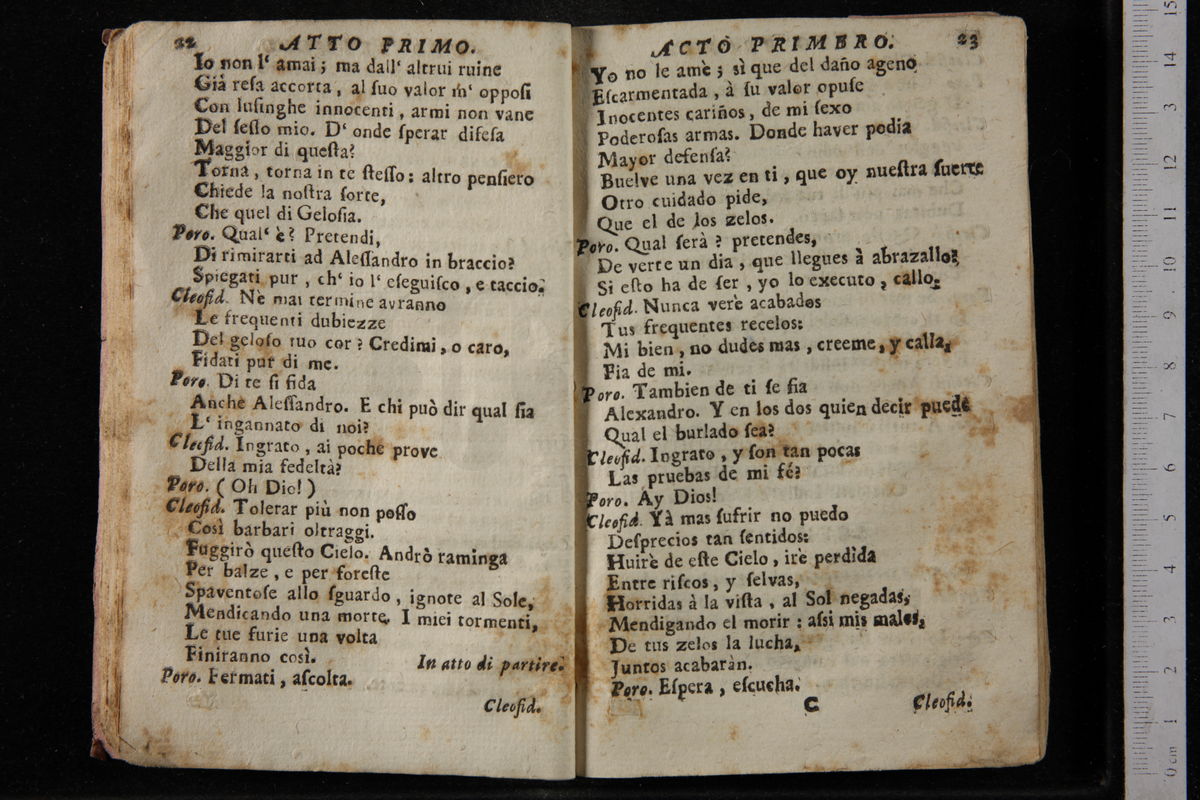 22 ATTO PRIMO.
Io non l‘ amai ; ma dall‘ altrui ruine
Già reſa accorta , al ſuo valor m‘ oppoſi
Con luſinghe innocenti , armi non vane
Del ſeſſo mio. D‘ onde ſperar difeſa
Maggior di queſta?
Torna , torna in te ſteſſo : altro penſiero
Chiede la noſtra ſorte,
Che quel di Geloſia.
Poro. Qual‘ è? Pretendi,
Di rimirarti ad Aleſſandro in braccio?
Spiegati pur , ch‘ io l‘ eſeguiſco , e taccio.
Cleofid. Nè mai termine avranno
Le frequenti dubiezze
Del geloſo tuo cor? Credimi , o caro,
Fidati pur di me.
Poro. Di te ſi fida
Anche Aleſſandro. E chi può dir qual ſia
L‘ ingannato di noi?
Cleofid. Ingrato , ai poche prove
Della mia fedeltà?
Poro. ( Oh Dio! )
Cleofid. Tolerar più non poſſo
Così barbari oltraggi.
Fuggirò queſto Cielo. Andrò raminga
Per balze , e per foreſte
Spaventoſe allo ſguardo , ignote al Sole,
Mendicando una morte. I miei tormenti,
Le tue furie una volta
Finiranno così. In atto di partire.
Poro. Fermati , aſcolta.
Cleofid.
ACTO PRIMERO. 23
Yo no le amè ; sì que del daño ageno
Eſcarmentada , à ſu valor opuſe
Inocentes cariños , de mi ſexo
Poderoſas armas. Donde haver podia
Mayor defenſa?
Buelve una vez en ti , que oy nueſtra ſuerte
Otro cuidado pide,
Que el de los zelos.
Poro. Qual ſerà ? pretendes,
De verte un dia , que llegues à abrazallo?
Si eſto ha de ſer , yo lo executo , callo.
Cleofid. Nunca verè acabados
Tus frequentes recelos:
Mi bien , no dudes mas , creeme , y calla,
Fia de mi.
Poro. Tambien de ti ſe fia
Alexandro. Y en los dos quien decir puede
Qual el burlado ſea?
Cleofid. Ingrato , y ſon tan pocas
Las pruebas de mi fé?
Poro. Ay Dios!
Cleofid. Yà mas ſufrir no puedo
Deſprecios tan ſentidos:
Huirè de eſte Cielo , irè perdida
Entre riſcos , y ſelvas,
Horridas à la viſta , al Sol negadas,
Mendigando el morir : aſsi mis males,
De tus zelos la lucha,
Juntos acabaràn.
Poro. Eſpera , eſcucha.
C Cleofid.
0 cm 1 2 3 4 5 6 7 8 9 10 11 12 13 14 15